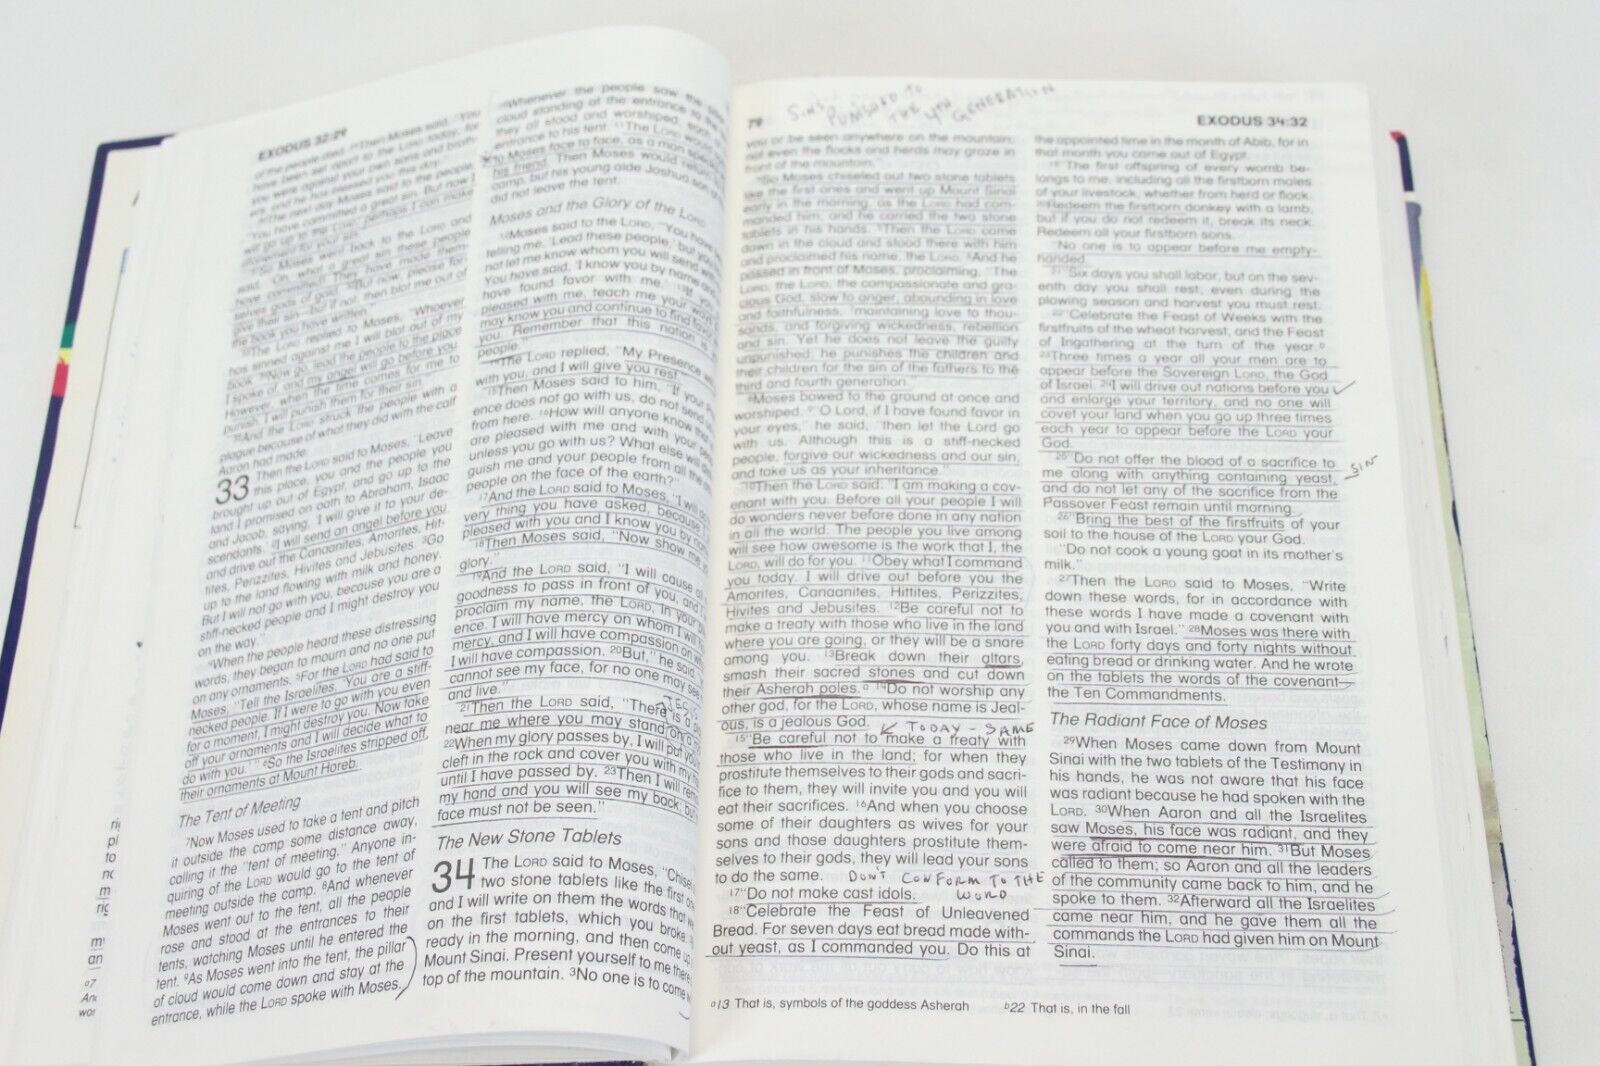 EXODUS 32:29
of the people died. 29Then Moses said, "You
have been set apart to the LORD today, for
you were against your own sons and broth-
ers, and he has blessed you this day."
30The next day Moses said to the people,
"You have committed a great sin. But now I
will go up to the LORD; perhaps I can make
atonement for your sin."
31So Moses went back to the LORD and
said, "Oh, what a great sin these people
have committed! They have made them-
selves gods of gold. 32But now, please for-
give their sin—but if not, then blot me out of
the book you have written."
33The LORD replied to Moses, "Whoever
has sinned against me I will blot out of my
book. 34Now go, lead the people to the place
I spoke of, and my angel will go before you.
However, when the time comes for me to
punish, I will punish them for their sin."
35And the LORD struck the people with a
plague because of what they did with the calf
Aaron had made.
33 Then the LORD said to Moses, "Leave
this place, you and the people you
brought up out of Egypt, and go up to the
land I promised on oath to Abraham, Isaac
and Jacob, saying, 'I will give it to your de-
scendants.' 2I will send an angel before you
and drive out the Canaanites, Amorites, Hit-
tites, Perizzites, Hivites and Jebusites. 3Go
up to the land flowing with milk and honey.
But I will not go with you, because you are a
stiff-necked people and I might destroy you
on the way."
4When the people heard these distressing
words, they began to mourn and no one put
on any ornaments. 5For the LORD had said to
Moses, "Tell the Israelites, 'You are a stiff-
necked people. If I were to go with you even
for a moment, I might destroy you. Now take
off your ornaments and I will decide what to
do with you.'" 6So the Israelites stripped off
their ornaments at Mount Horeb.
The Tent of Meeting
7Now Moses used to take a tent and pitch
it outside the camp some distance away,
calling it the "tent of meeting." Anyone in-
quiring of the LORD would go to the tent of
meeting outside the camp. 8And whenever
Moses went out to the tent, all the people
rose and stood at the entrances to their
tents, watching Moses until he entered the
tent. 9As Moses went into the tent, the pillar
of cloud would come down and stay at the
entrance, while the LORD spoke with Moses.
10Whenever the people saw the
cloud standing at the entrance to the
they all stood and worshiped, each
entrance to his tent. 11The LORD would
to Moses face to face, as a man
his friend. Then Moses would return
camp, but his young aide Joshua son
did not leave the tent.
Moses and the Glory of the LORD
12Moses said to the LORD, "You have
telling me, 'Lead these people,' but you
not let me know whom you will send with
You have said, 'I know you by name and
have found favor with me.' 13If you
pleased with me, teach me your ways
may know you and continue to find favor
you. Remember that this nation is
people."
14The LORD replied, "My Presence
with you, and I will give you rest."
15Then Moses said to him, "If your
ence does not go with us, do not send
from here. 16How will anyone know
are pleased with me and with your
unless you go with us? What else will
guish me and your people from all the
people on the face of the earth?"
17And the LORD said to Moses, "I will do
very thing you have asked, because I
pleased with you and I know you by name
18Then Moses said, "Now show me
glory."
19And the LORD said, "I will cause all
goodness to pass in front of you, and I
proclaim my name, the LORD, in your
ence. I will have mercy on whom I will
mercy, and I will have compassion on
I will have compassion. 20But," he said,
cannot see my face, for no one may see
and live."
21Then the LORD said, "There is a
near me where you may stand on a
22When my glory passes by, I will put you
cleft in the rock and cover you with my
until I have passed by. 23Then I will
my hand and you will see my back; but
face must not be seen."
The New Stone Tablets
34 The LORD said to Moses, "Chisel
two stone tablets like the first
and I will write on them the words that
on the first tablets, which you broke.
ready in the morning, and then come up
Mount Sinai. Present yourself to me there
top of the mountain. 3No one is to come
79
SINS PUNISHED TO
THE 4TH GENERATION
EXODUS 34:32
you or be seen anywhere on the mountain;
not even the flocks and herds may graze in
front of the mountain."
4So Moses chiseled out two stone tablets
like the first ones and went up Mount Sinai
early in the morning, as the LORD had com-
manded him; and he carried the two stone
tablets in his hands. 5Then the LORD came
down in the cloud and stood there with him
and proclaimed his name, the LORD. 6And he
passed in front of Moses, proclaiming, "The
LORD, the LORD, the compassionate and gra-
cious God, slow to anger, abounding in love
and faithfulness, 7maintaining love to thou-
sands, and forgiving wickedness, rebellion
and sin. Yet he does not leave the guilty
unpunished; he punishes the children and
their children for the sin of the fathers to the
third and fourth generation."
8Moses bowed to the ground at once and
worshiped. 9"O Lord, if I have found favor in
your eyes," he said, "then let the Lord go
with us. Although this is a stiff-necked
people, forgive our wickedness and our sin,
and take us as your inheritance."
10Then the LORD said: "I am making a cov-
enant with you. Before all your people I will
do wonders never before done in any nation
in all the world. The people you live among
will see how awesome is the work that I, the
LORD, will do for you. 11Obey what I command
you today. I will drive out before you the
Amorites, Canaanites, Hittites, Perizzites,
Hivites and Jebusites. 12Be careful not to
make a treaty with those who live in the land
where you are going, or they will be a snare
among you. 13Break down their altars,
smash their sacred stones and cut down
their Asherah poles.a 14Do not worship any
other god, for the LORD, whose name is Jeal-
ous, is a jealous God.
TODAY - SAME
15"Be careful not to make a treaty with
those who live in the land; for when they
prostitute themselves to their gods and sacri-
fice to them, they will invite you and you will
eat their sacrifices. 16And when you choose
some of their daughters as wives for your
sons and those daughters prostitute them-
selves to their gods, they will lead your sons
to do the same.
DON'T CONFORM TO THE
WORD
17"Do not make cast idols.
18"Celebrate the Feast of Unleavened
Bread. For seven days eat bread made with-
out yeast, as I commanded you. Do this at
the appointed time in the month of Abib, for in
that month you came out of Egypt.
19"The first offspring of every womb be-
longs to me, including all the firstborn males
of your livestock, whether from herd or flock.
20Redeem the firstborn donkey with a lamb,
but if you do not redeem it, break its neck.
Redeem all your firstborn sons.
"No one is to appear before me empty-
handed.
21"Six days you shall labor, but on the sev-
enth day you shall rest; even during the
plowing season and harvest you must rest.
22"Celebrate the Feast of Weeks with the
firstfruits of the wheat harvest, and the Feast
of Ingathering at the turn of the year.b
23Three times a year all your men are to
appear before the Sovereign LORD, the God
of Israel. 24I will drive out nations before you
and enlarge your territory, and no one will
covet your land when you go up three times
each year to appear before the LORD your
God.
25"Do not offer the blood of a sacrifice to
me along with anything containing yeast,
SIN
and do not let any of the sacrifice from the
Passover Feast remain until morning.
26"Bring the best of the firstfruits of your
soil to the house of the LORD your God.
"Do not cook a young goat in its mother's
milk."
27Then the LORD said to Moses, "Write
down these words, for in accordance with
these words I have made a covenant with
you and with Israel." 28Moses was there with
the LORD forty days and forty nights without
eating bread or drinking water. And he wrote
on the tablets the words of the covenant—
the Ten Commandments.
The Radiant Face of Moses
29When Moses came down from Mount
Sinai with the two tablets of the Testimony in
his hands, he was not aware that his face
was radiant because he had spoken with the
LORD. 30When Aaron and all the Israelites
saw Moses, his face was radiant, and they
were afraid to come near him. 31But Moses
called to them; so Aaron and all the leaders
of the community came back to him, and he
spoke to them. 32Afterward all the Israelites
came near him, and he gave them all the
commands the LORD had given him on Mount
Sinai.
a13 That is, symbols of the goddess Asherah b22 That is, in the fall